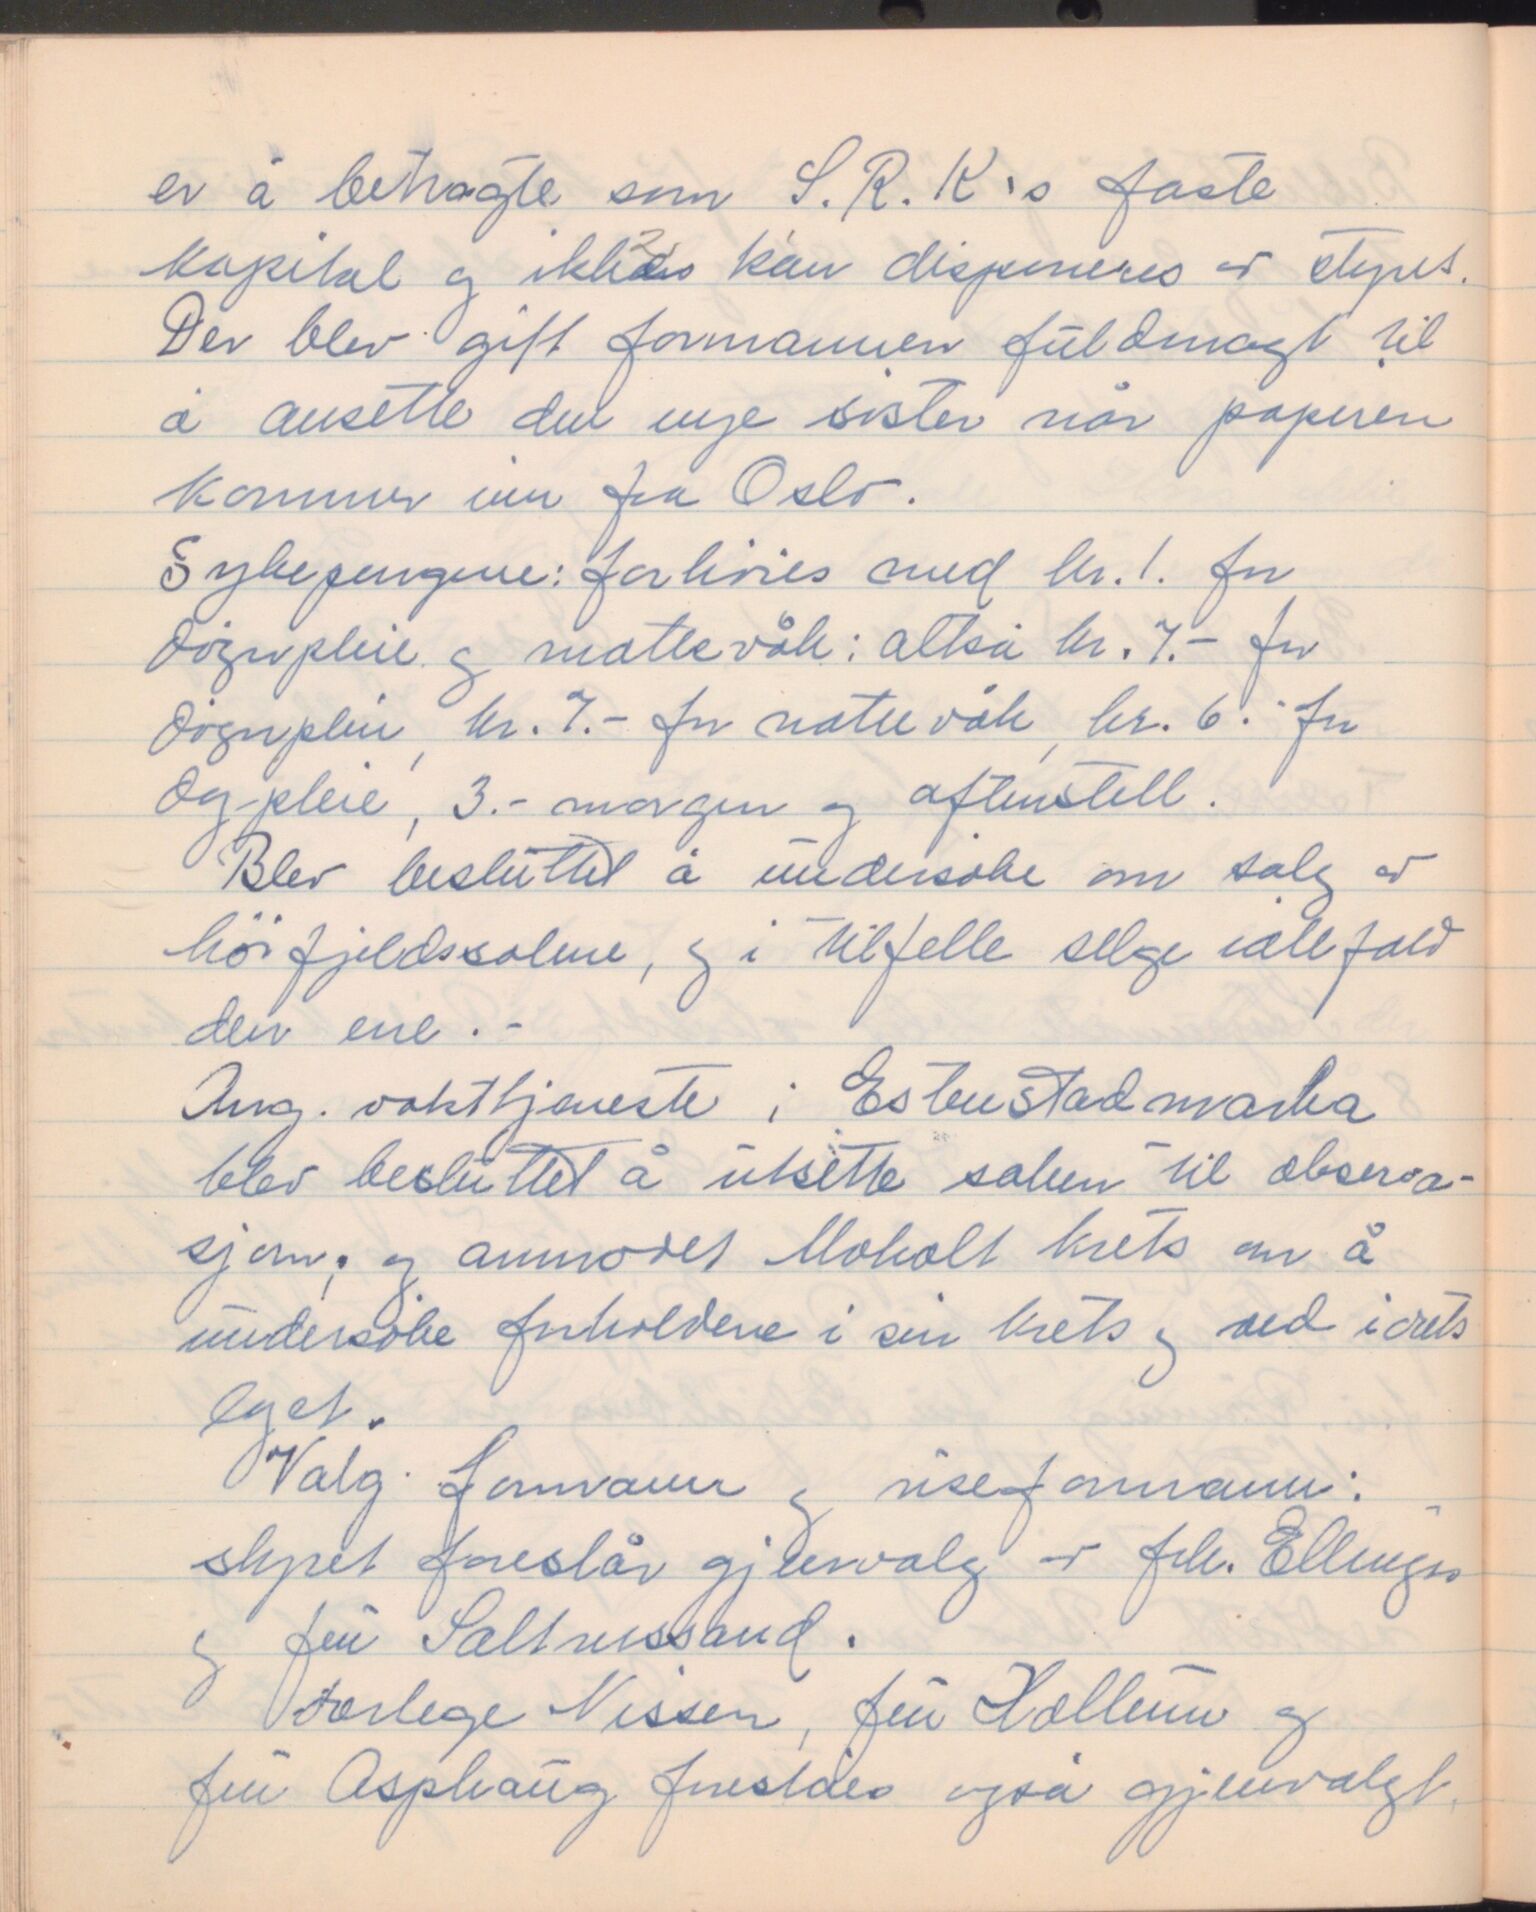 er å betragte som S.R.K's faste
kapital og ikke kan disponeres av styret.
Der blev gift formannen fuldmagt til
å ansette den nye søster når papiren
kommer inn fra Oslo.
Sykepengene: forhöies med kr. 1. for
dögnpleie og nattevåk: altså kr. 7.- for
dögnpleie, kr. 7.- for nattevåk, kr. 6.- for
dag-pleie, 3.- morgen og aftenstell.
Blev besluttet å undersöke om salg av
höifjeldssolene, og i tilfelle selge iallefald
den ene.-
Ang. vakttjeneste i Estenstadmarka
blev besluttet å utsette saken til observa-
sjon; og anmodet Moholt krets om å
undersöke forholdene i sin krets og ved idrets
laget.
Valg. formann og viseformann:
styret foreslår gjenvalg av frk. Ellingsen
og fru Saltnessand.
Overlege Nissen, fru Hallem og
fru Asphaug foreslåes også gjenvalgt.